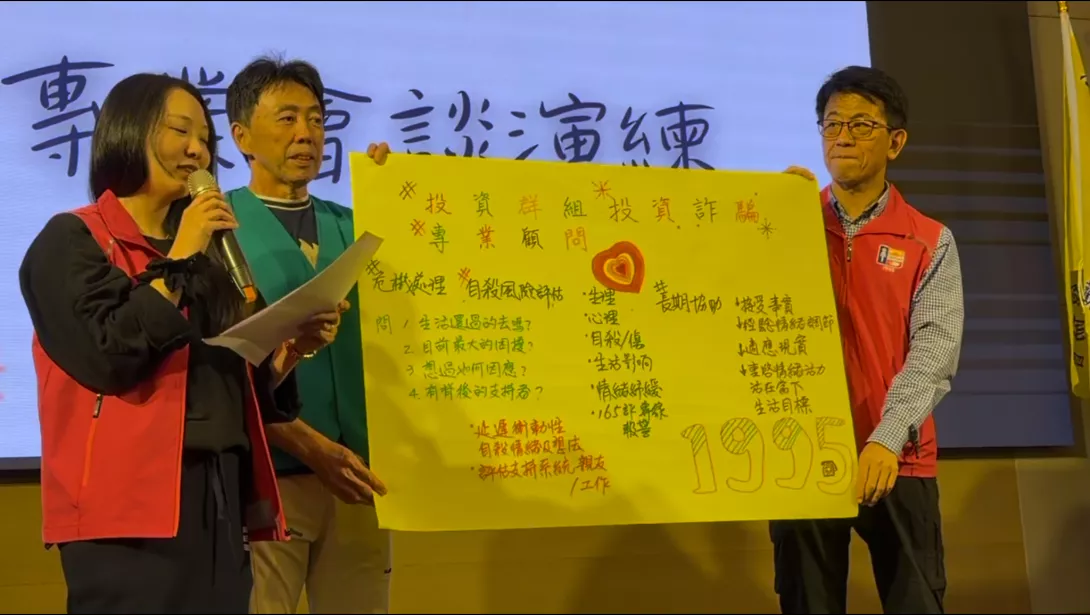 專業會談演練
#投資群組*投資詐騙
*專業顧問
#危機處理
問 1. 生活還過的去嗎?
2. 目前最大的困擾?
3. 想過如何因應?
4. 有背後的支持者?
*自殺風險評估
·延遲衝動性
自殺情緒及想法
·評估支持系統,親友
/工作
·生理
·心理
·自殺/傷
·生活影響
·情緒紓緩
·165詐專線
報警
#長期協助
↓接受事實
↓經驗情緒調節
↓適應現實
↓重啓情緒活力
活在當下
生活目標
1995